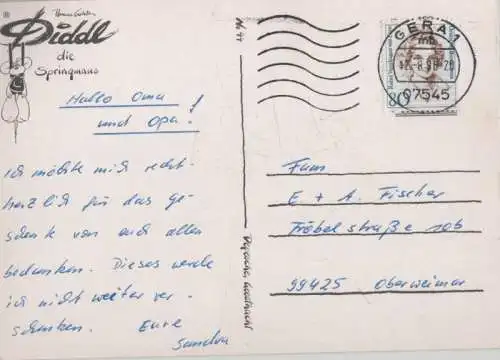 Diddl
die
Springmaus
Hallo Oma
und Opa!
Ich möchte mich recht
herzlich für das ge-
schenk von euch allen
bedanken. Dieses werde
ich nicht weiter ver-
schenken. Eure
Sandra
GERA 1
mb
07545
80
Fam
E + A. Fischer
Fröbelstraße 10b
99425 Oberweimar